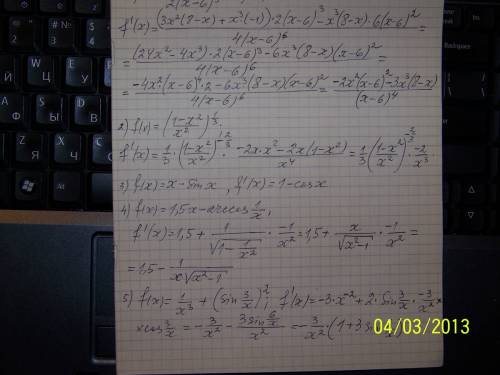 f'(x)= (3x²(8-x)+x³(-1))·2(x-6)³-x³(8-x)·6(x-6)² / 4(x-6)⁶ =
= (24x²-4x³)·2(x-6)³-6x³(8-x)(x-6)² / 4(x-6)⁶ =
= -4x²(x-6)⁴·2-6x³(8-x)(x-6)² / 4(x-6)⁶ = -2x²(x-6)²-3x³(8-x) / (x-6)⁴
2) f(x)=((1-x²)/x²)^(1/3).
f'(x)=1/3·((1-x²)/x²)^(-2/3)·(-2x·x²-2x(1-x²))/x⁴=1/3((1-x²)/x²)^(-2/3)·-2/x³
3) f(x)=x-sinx, f'(x)=1-cosx
4) f(x)=1,5x-arccos 1/x,
f'(x)=1,5+1/√(1-1/x²)·-1/x²=1,5+x/√(x²-1)·-1/x²=
=1,5-1/(x√(x²-1))
5) f(x)=1/x³+(sin 3/x)²; f'(x)=-3·x⁻²+2·sin 3/x·-3/x²×
×cos 3/x=-3/x²-3sin 6/x / x²=-3/x²·(1+3
04/03/2013